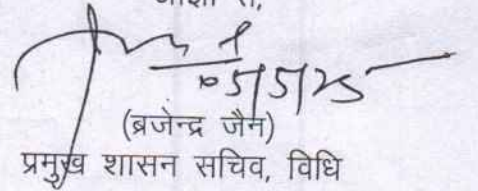 आज्ञा से,
(ब्रजेन्द्र जैन)
प्रमुख शासन सचिव, विधि